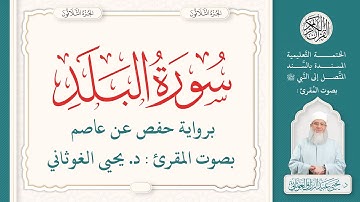 الجزء الثلاثون
الجزء الثلاثون
سُورَةُ البَلَدِ
برواية حفص عن عاصم
بصوت المقرئ : د. يحيى الغوثاني
القرآن الكريم
الختمة التعليمية
المسندة بالسَّند
المتَّصل إلى النَّبي ﷺ
بصوت المُقرئ :
د. يحيى عبد الرزاق الغوثاني